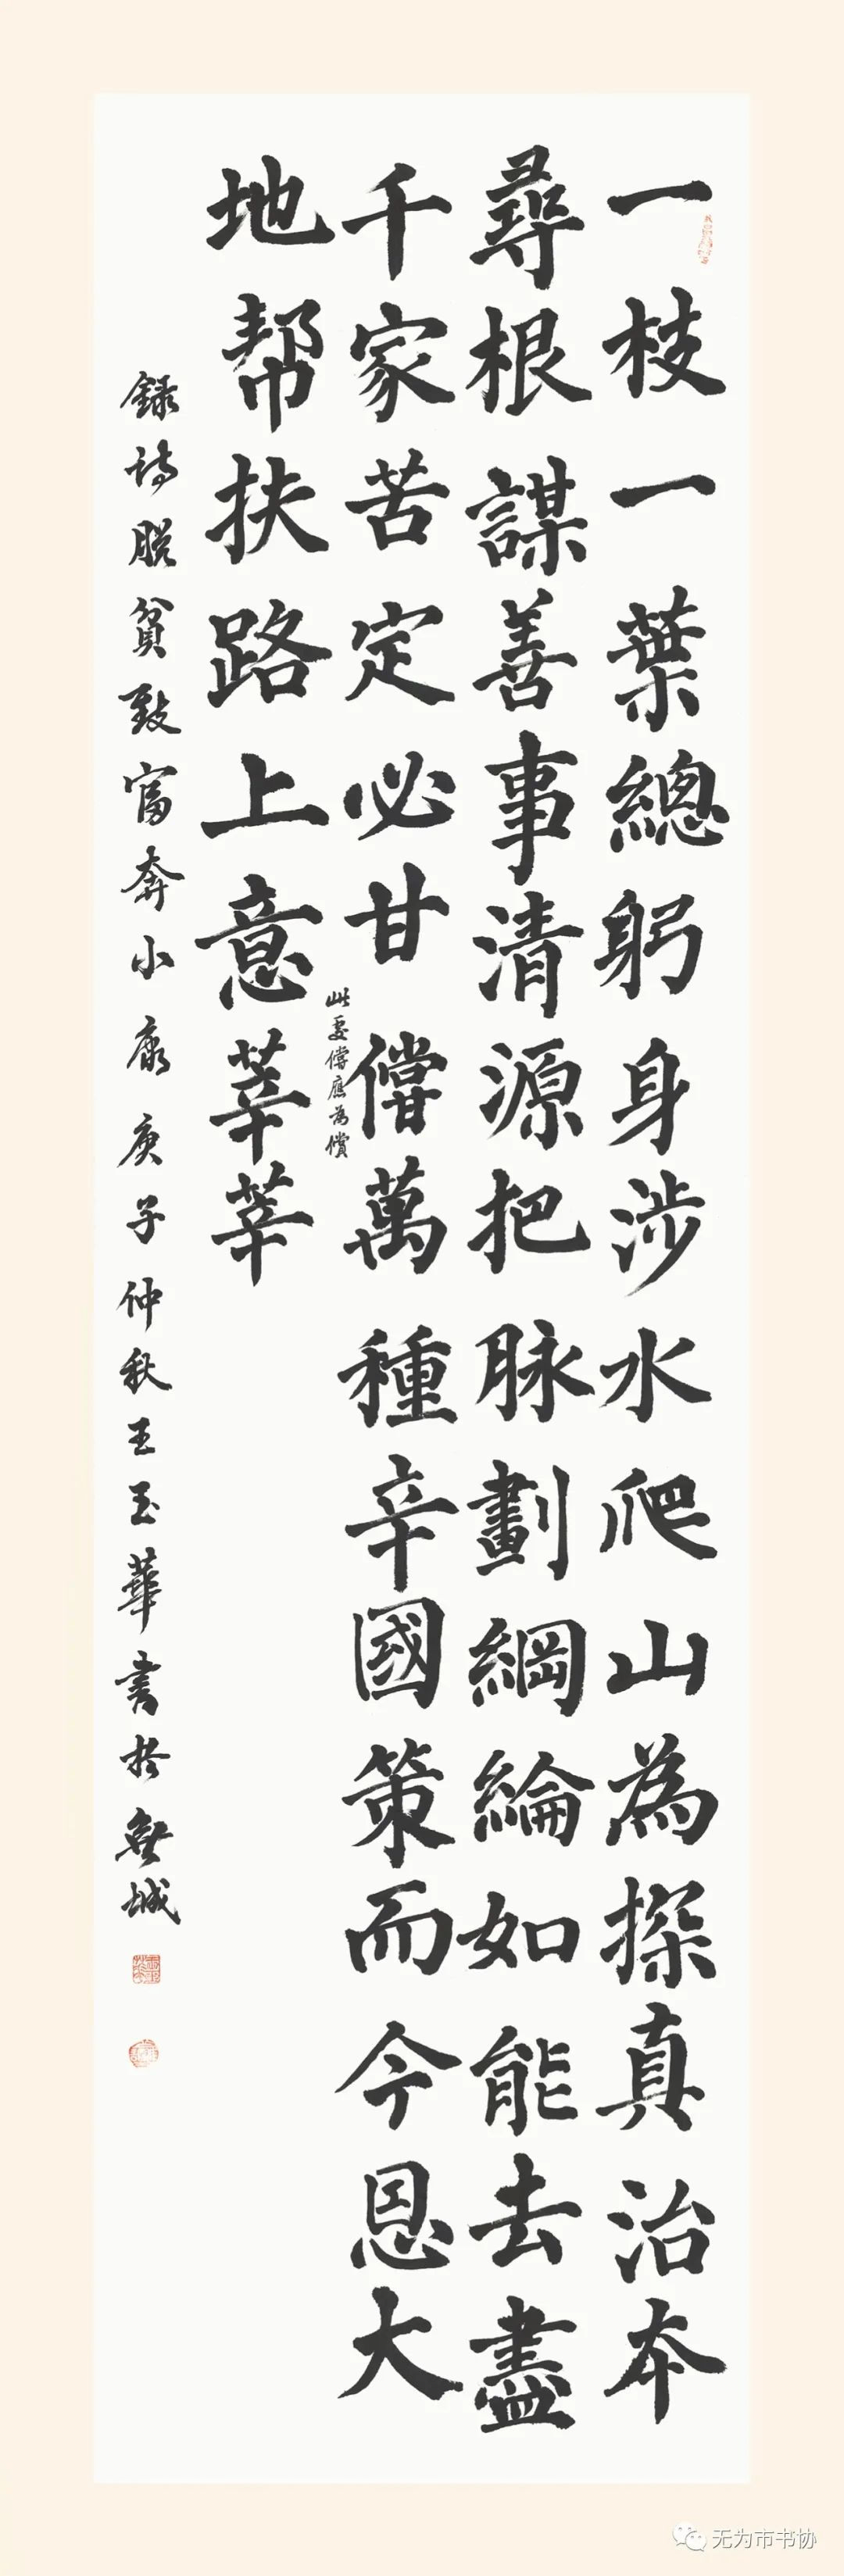 一枝一葉總躬身涉水爬山為探真治本
尋根謀善事清源把脉劃綱綸如能去盡
千家苦定必甘僭萬種辛國策而今恩大
此處僭應為償
地帮扶路上意莘莘
録詩脫貧致富奔小康庚子仲秋王玉華書於無城
无为市书协